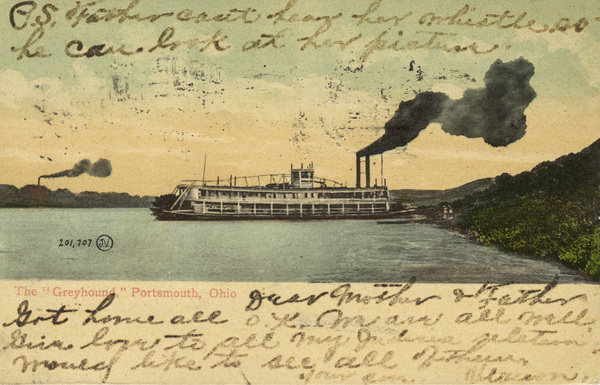 P.S. Father can't hear her whistle so
he can look at her picture.
201,707 JV
The "Greyhound" Portsmouth, Ohio
Dear Mother & Father
Got home all O.K. We are all well
Give love to all my Indiana
Would like to see all of them.
Your son.